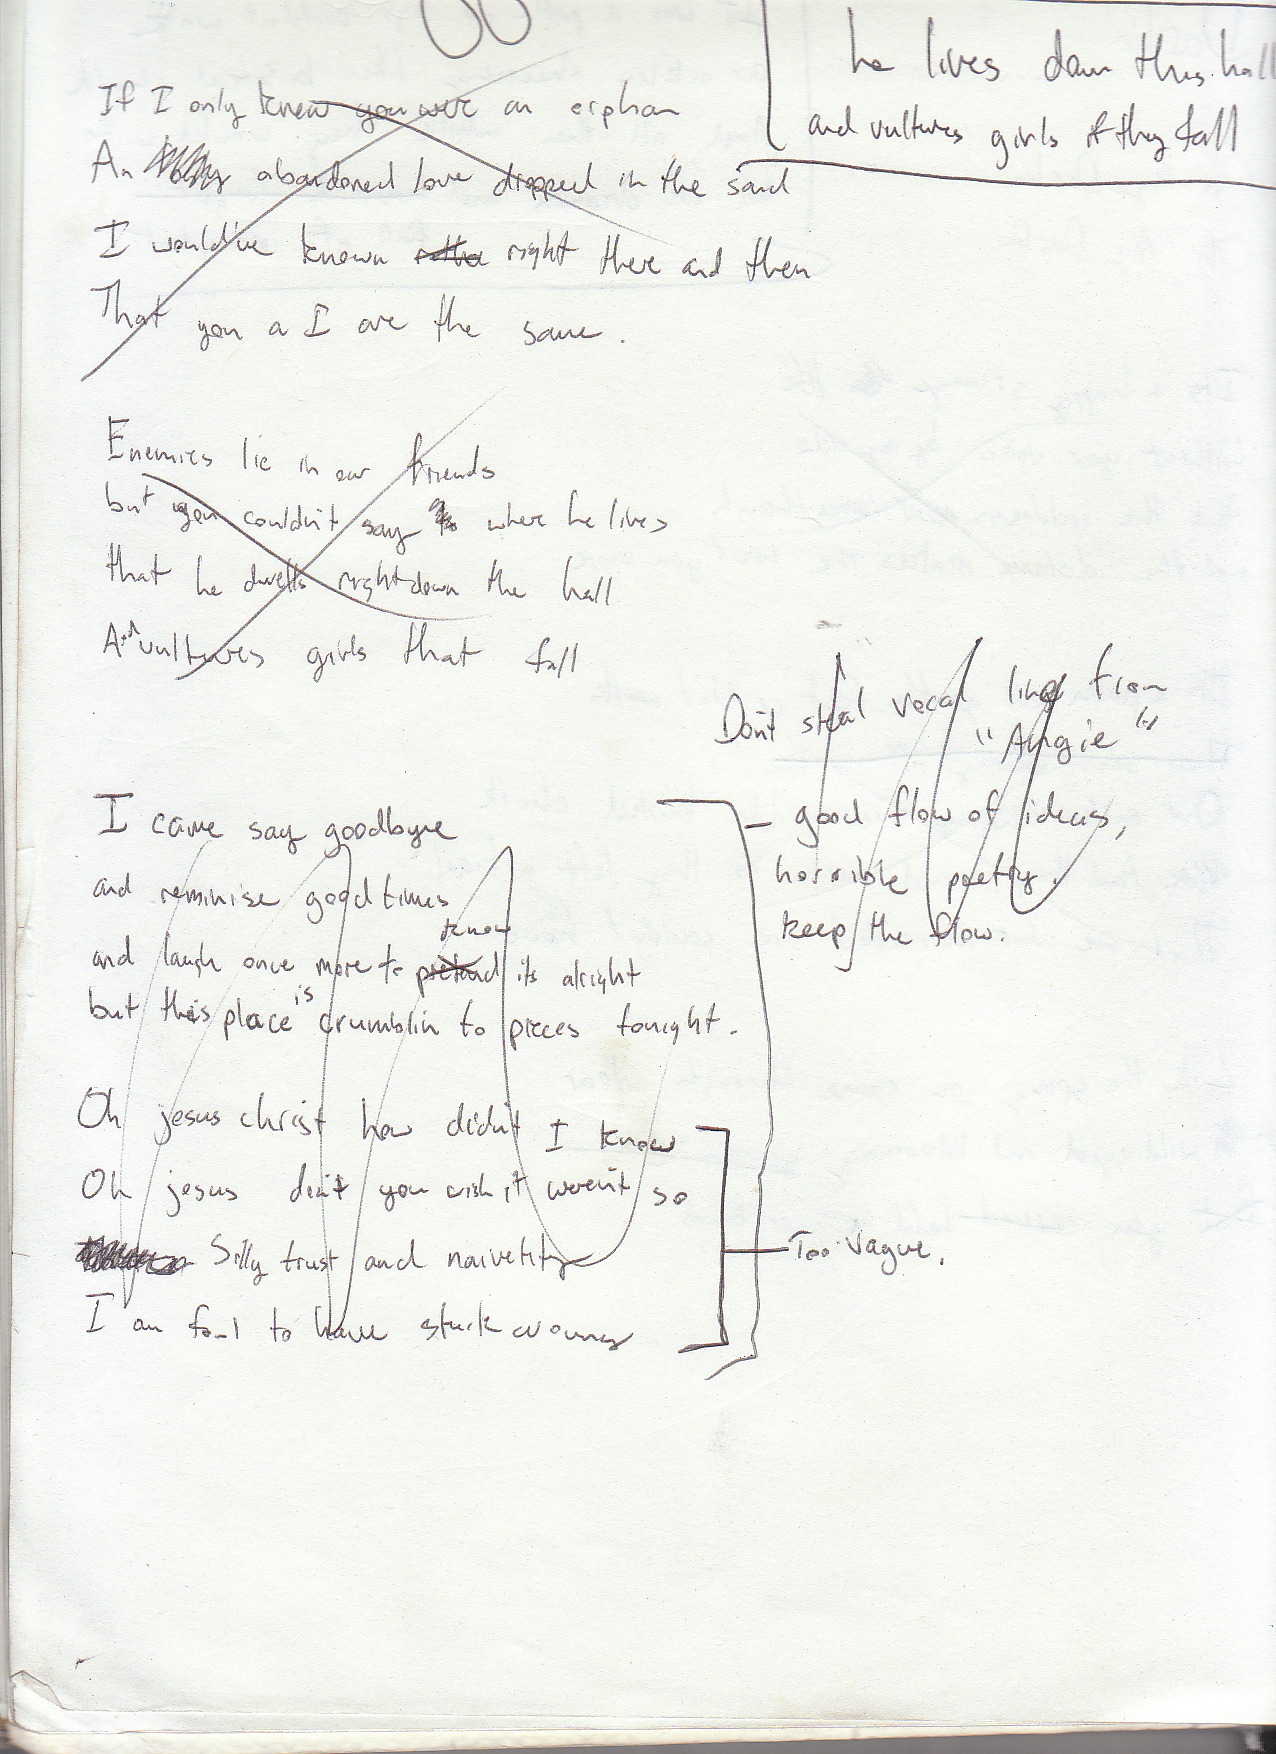 he lives down this hall
and vultures girls if they fall
If I only knew you were an orphan
An abandoned love dropped in the sand
I would've known right there and then
That you a I are the same.
Enemies lie in our friends
but you couldn't say where he lives
that he dwells right down the hall
And vultures girls that fall
Don't steal vocal line from
"Angie"
I came say goodbye
and reminise good times
and laugh once more to pretend know its alright
but this place is crumblin to pieces tonight.
good flow of ideas,
horrible poetry.
keep the flow.
Oh jesus christ how didn't I know
Oh jesus don't you wish it weren't so
Silly trust and naivetity
I am fool to have stuck around
Too vague.